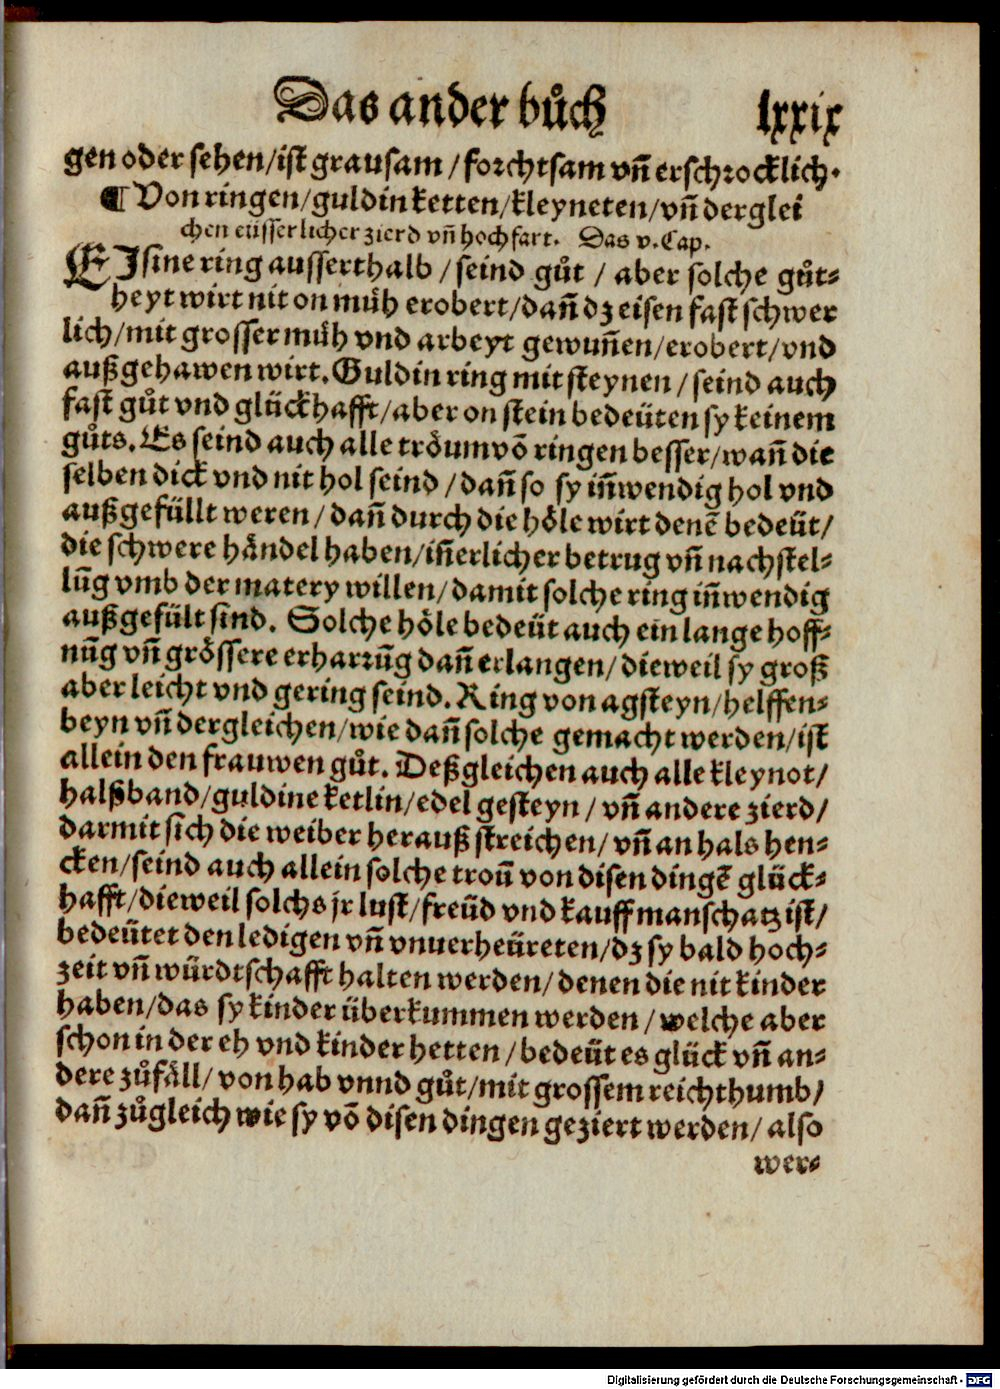 Das ander bůch lxxix
gen oder sehen/ist grausam/forchtsam vñ erschrocklich.
¶ Von ringen/guldin ketten/kleyneten/vñ derglei
chen eüsserlicher zierd vñ hochfart. Das v. Cap.
EIsine ring ausserthalb/seind gůt/ aber solche gůt-
heyt wirt nit on müh erobert/dañ dz eisen fast schwer
lich/mit grosser müh vnd arbeyt gewuñen/erobert/vnd
außgehawen wirt. Guldin ring mit steynen/seind auch
fast gůt vnd glückhafft/aber on stein bedeüten sy keinem
gůts. Es seind auch alle tröum võ ringen besser/wañ die
selben dick vnd nit hol seind/dañ so sy iñwendig hol vnd
außgefüllt weren/dañ durch die höle wirt denẽ bedeüt/
die schwere håndel haben/iñerlicher betrug vñ nachstel-
lũg vmb der matery willen/damit solche ring iñwendig
außgefült sind. Solche höle bedeüt auch ein lange hoff-
nũg vñ grössere erharrũg dañ erlangen/dieweil sy groß
aber leicht vnd gering seind. Ring von agsteyn/helffen-
beyn vñ dergleichen/wie dañ solche gemacht werden/ist
allein den frauwen gůt. Deßgleichen auch alle kleynot/
halßband/guldine ketlin/edel gesteyn/vñ andere zierd/
darmit sich die weiber herauß streichen/vñ an hals hen-
cken/seind auch allein solche troũ von disen dingẽ glück-
hafft/dieweil solchs jr lust/freüd vnd kauffmanschatz ist/
bedeütet den ledigen vñ vnuerheüreten/dz sy bald hoch-
zeit vñ würdtschafft halten werden/denen die nit kinder
haben/das sy kinder überkummen werden/welche aber
schon in der eh vnd kinder hetten/bedeüt es glück vñ an-
dere zůfåll/von hab vnnd gůt/mit grossem reichthumb/
dañ zůgleich wie sy võ disen dingen geziert werden/also
wer-
Digitalisierung gefördert durch die Deutsche Forschungsgemeinschaft - DFG